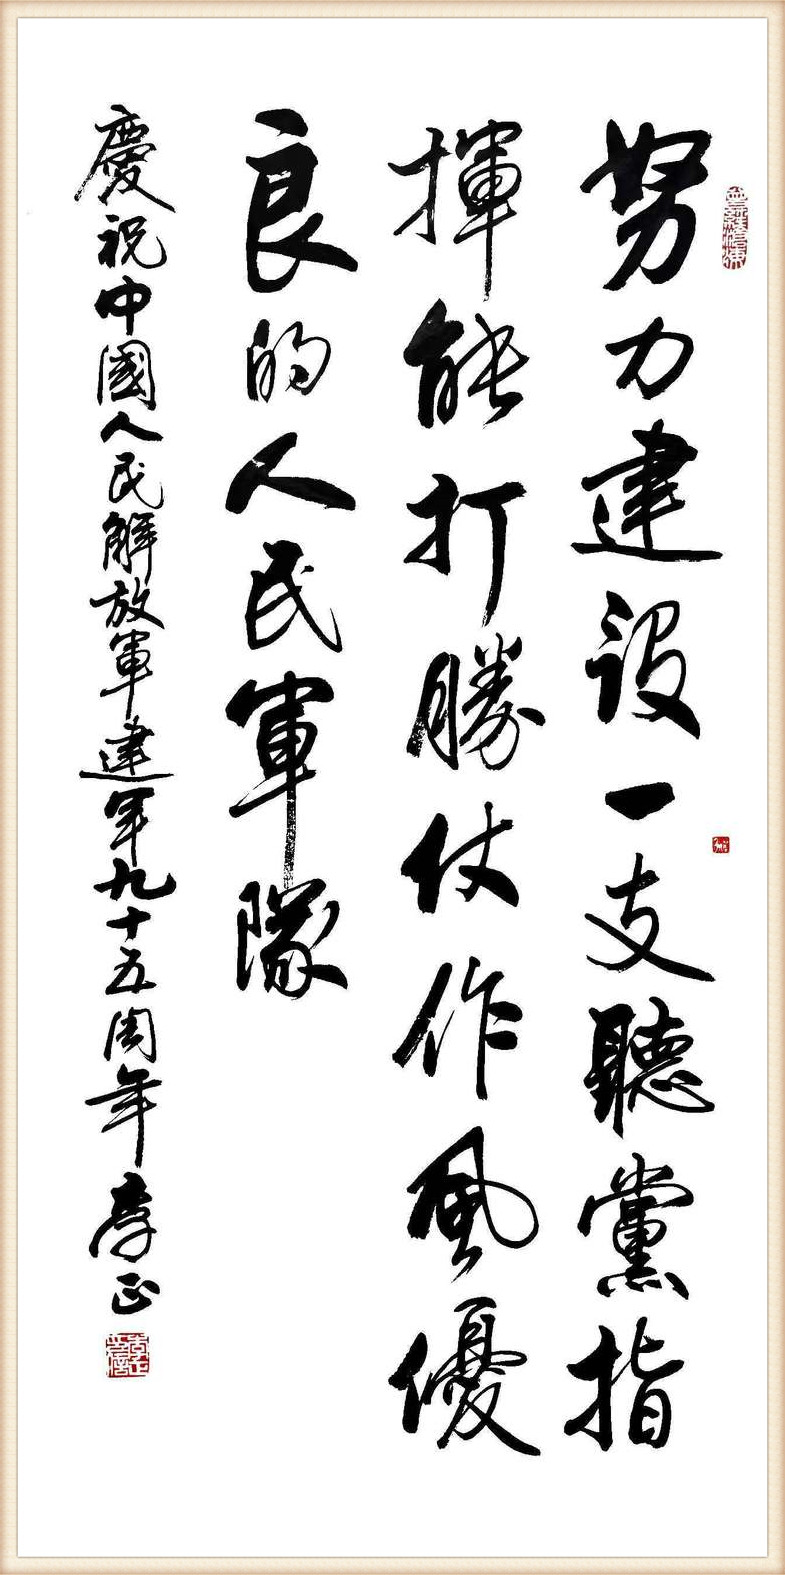 努力建設一支聽黨指
揮能打勝仗作風優
良的人民軍隊
慶祝中國人民解放軍建軍九十五周年李正